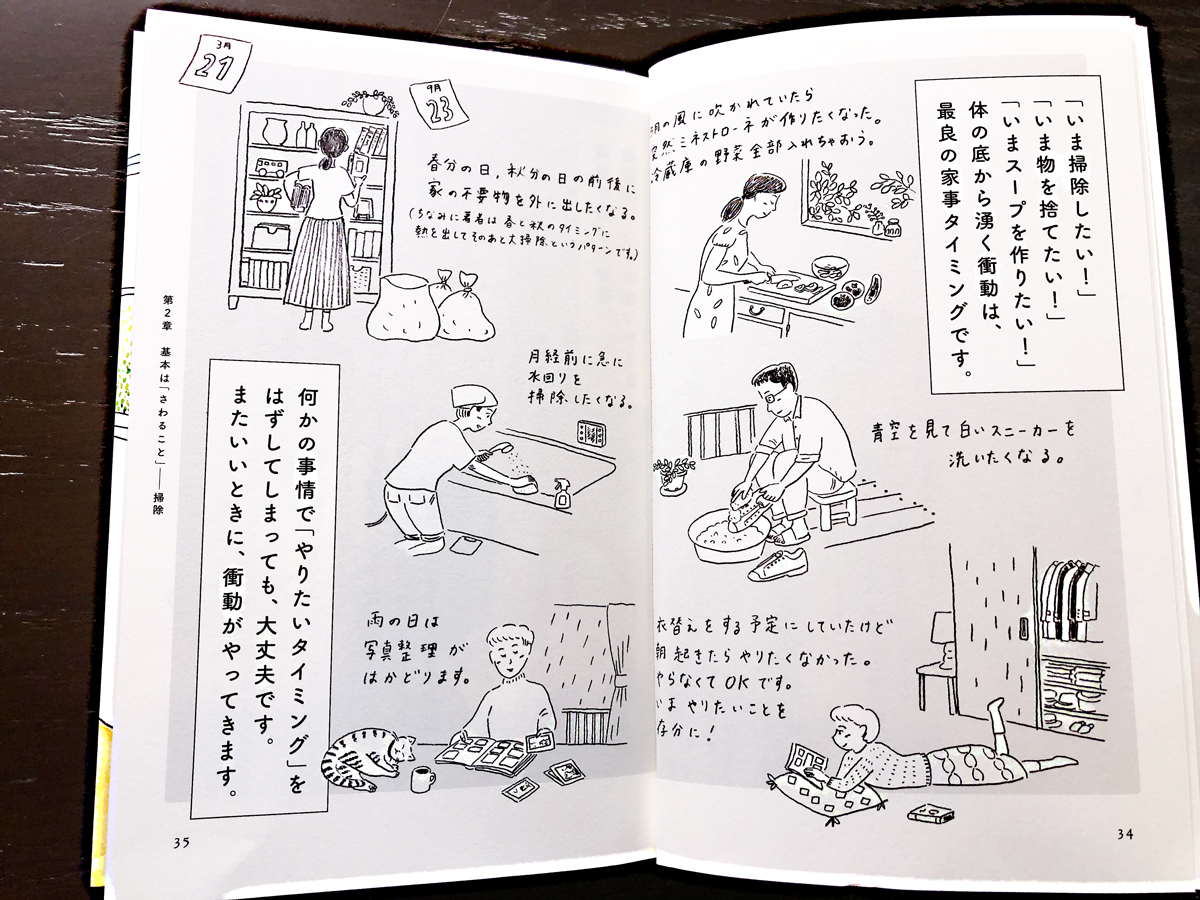 「いま掃除したい！」
「いま物を捨てたい！」
「いまスープを作りたい！」
体の底から湧く衝動は、
最良の家事タイミングです。
の風に吹かれていたら
突然ミネストローネが作りたくなった。
冷蔵庫の野菜全部入れちゃおう。
青空を見て白いスニーカーを
洗いたくなる。
衣替えをする予定にしていたけど
朝起きたらやりたくなかった。
やらなくてOKです。
いまやりたいことを
存分に！
34
3月
21
9月
23
春分の日，秋分の日の前後に
家の不要物を外に出したくなる。
(ちなみに著者は春と秋のタイミングに
熱を出してそのあと大掃除というパターンです。)
月経前に急に
水回りを
掃除したくなる。
雨の日は
写真整理が
はかどります。
何かの事情で「やりたいタイミング」を
はずしてしまっても、大丈夫です。
またいいときに、衝動がやってきます。
第2章 基本は「さわること」――掃除
35